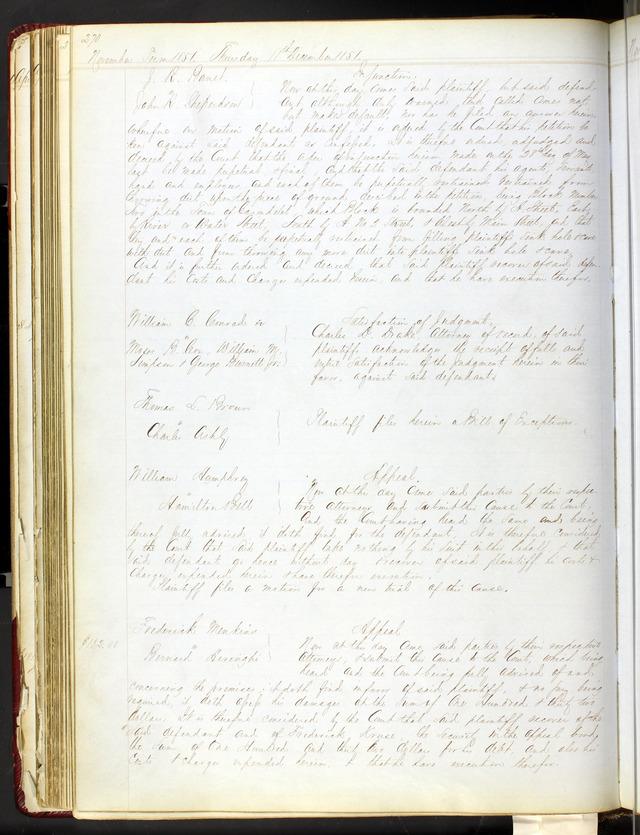 270
November Term 1851 Thursday 11th December 1851
J. R. Barret
John K. Stephenson
Injunction
Now at this day came said plaintiff, but said defend-
ant although duly summoned and called came not,
but makes default, nor has he filed any answer herein
wherefore on motion of said plaintiff, it is ordered by the Court that his petition be
taken against said defendant as confessed. It is therefore ordered adjudged and
decreed by the Court that the order of injunction herein made on the 28th day of
last be made perpetual & final, and that the said defendant his agents, servants
and employees and each of them be perpetually restrained from
throwing dirt upon the piece of ground described in the petition being Block Number
six in the Town of Carondelet, which Block is bounded North by A Street, East
by River or Water Street, South by A No 2 Street, & West by Main Street and that
they and each of them be perpetually restrained from filling plaintiff's sink hole
with dirt and from throwing any more dirt into plaintiff's sink hole
And it is further ordered and decreed that said plaintiff recover of said defen-
dant his costs and charges expended herein, and that he have execution therefor.
William C. Conrad
Major R. William M.
Simpson & George Burnett jr.
Satisfaction of Judgment.
Charles D. Drake attorney of record, of said
plaintiff acknowledges the receipt of full and
entire satisfaction of the judgment herein in their
favor, against said defendants
Thomas L. Brown
"
Charles Ashly
Plaintiff files herein a Bill of Exceptions.
William Humphrey
"
Hamilton Bell
Appeal.
Now at this day came said parties by their respec-
tive attorneys and submit this cause to the Court.
And the Court having heard the same and being
thereof fully advised, it doth find for the defendant. It is therefore considered
by the Court that said plaintiff take nothing by his suit in this behalf & that
said defendant go hence without day & recover of said plaintiff his costs &
charges expended herein & have therefor execution.
Plaintiff files a motion for a new trial of this cause.
$132.00
Frederick Menkins
"
Bernard
Appeal
Now at this day came said parties by their respective
attorneys & submit this cause to the Court, which being
heard and the Court being fully advised of and
concerning the premises; it doth find in favor of said plaintiff, & no jury being
required, it doth assess his damages at the sum of One Hundred & thirty two
dollars. It is therefore considered by the Court that said plaintiff recover of the
said defendant and of Frederick Kruse, the security in the appeal bond,
the sum of One Hundred and thirty two dollars for his debt, and also his
costs & charges expended herein & that he have execution therefor.